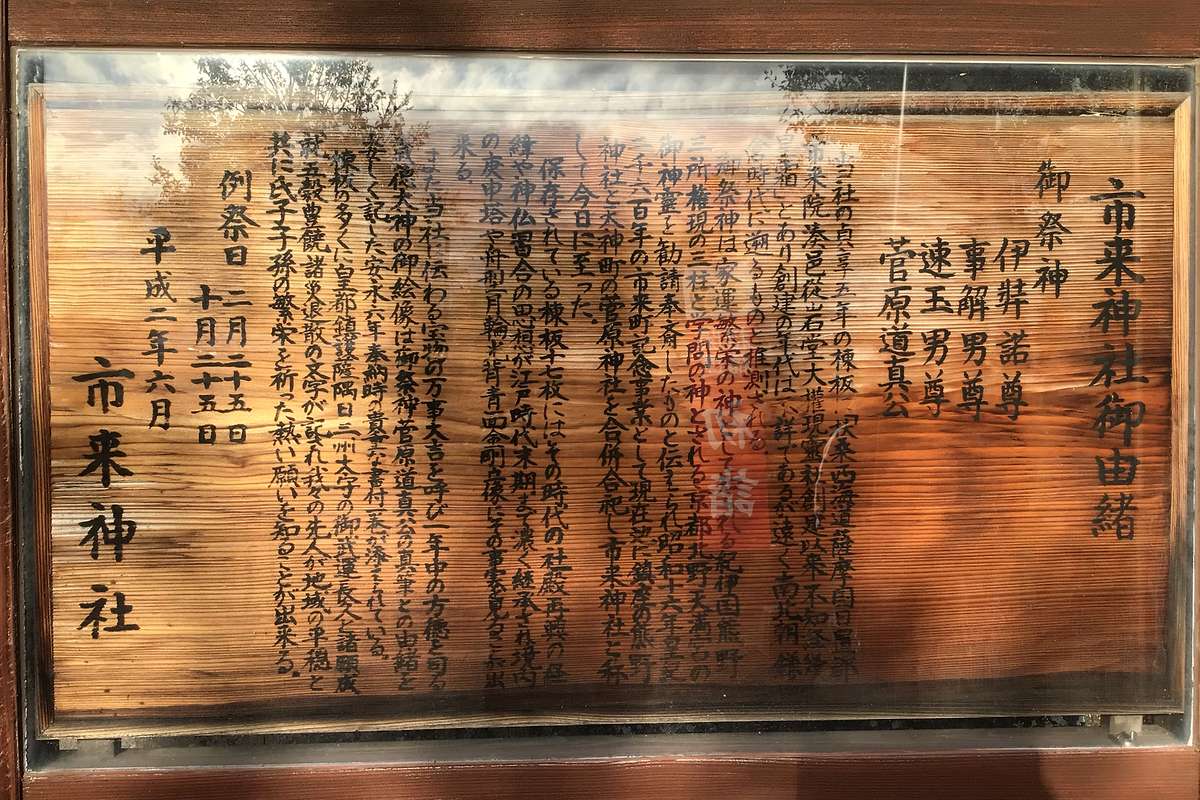 市来神社御由緒
御祭神
伊弉諾尊
事解男尊
速玉男尊
菅原道真公
当社の貞享五年の棟板に 西海道薩摩国日置郡
市来院湊邑従岩堂大権現 創建以来不知
星霜」とあり創建の年代は不詳であるが遠く南北朝鎌
倉時代に遡るものと推測される。
御祭神は家運繁栄の神として れる紀伊国熊野
三所権現の三柱と学問の神とされる京都北野天満宮の
御神霊を勧請奉斎したものと伝えられ昭和十六年皇紀
二千六百年の市来町記念事業として現在地に鎮座の熊野
神社と大神町の菅原神社を合併合祀し市来神社と称
して今日に至った。
保存されている棟板十七枚にはその時代の社殿再興の経
緯や神仏習合の思想が江戸時代末期まで濃く継承され境内
の庚申塔や舟型月輪 背青面金剛 像にその事実を見ることが出
来る。
また当社に伝わる宝物 万事大吉を呼び一年中の方徳を司る
歳徳大神の御絵像は御祭神菅原道真公の真筆との由緒を
しく記した安永六年奉納時の 書付一巻が添えられている。
棟板の多くに皇都鎮護薩隅日三州太守の御武運長久と諸願成
就五穀豊饒諸 退散の文字が記され我々の先人が地域の平穏と
共に氏子子孫の繁栄を祈った熱い願いを知ることが出来る。
例祭日 二月二十五日
十月二十五日
平成二年六月
市来神社